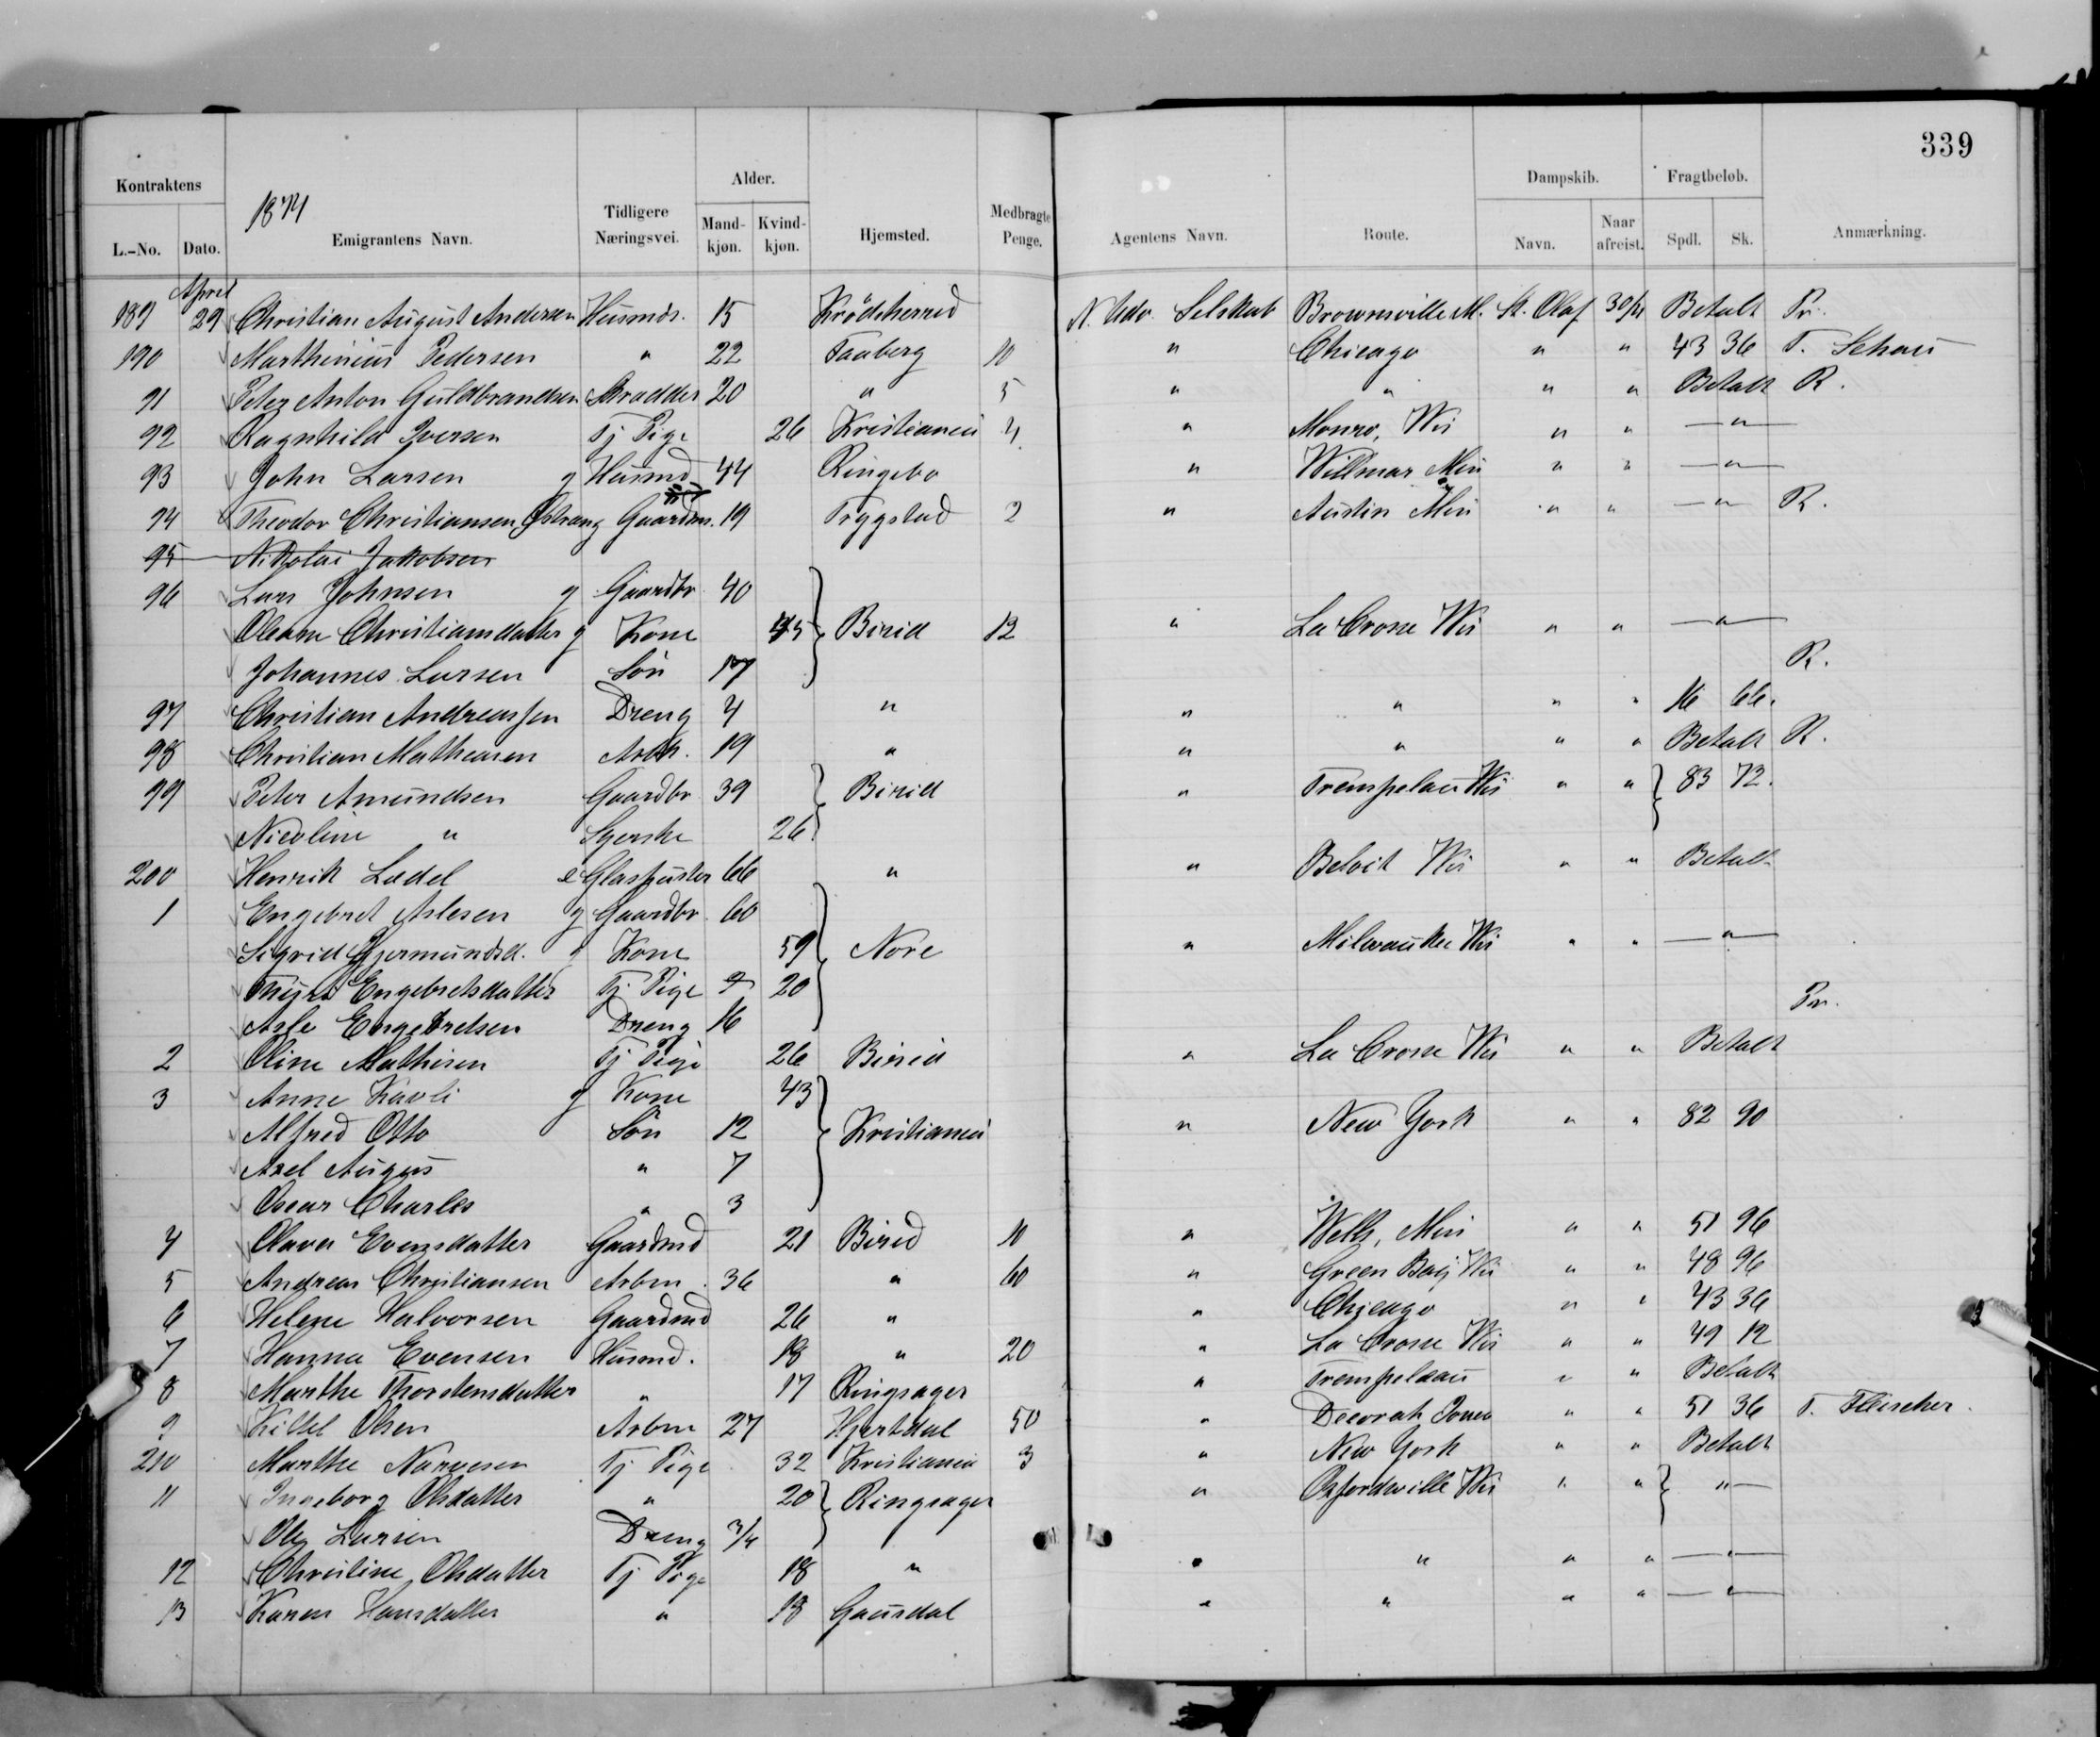 339
Kontraktens
1871
Alder.
Dampskib.
Fragtbeløb.
L.-No. Dato. Emigrantens Navn. Tidligere Næringsvei. Mandkjøn. Kvindkjøn. Hjemsted. Medbragte Penge. Agentens Navn. Route. Navn. Naar afreist. Spdl. Sk. Anmærkning.
April
189 29 Christian August Andersen Husmds. 15 Krödsherred N. Udv. Selskab Brownsville M. St. Olaf 30/4 Betalt Pr.
190 Marthinius Pedersen " 22 Faaberg 10 " Chicago " " 43 36 T. Schou
91 Peter Anton Guldbrandsen Skrædder 20 " 5 " " " " Betalt R.
92 Ragnhild Iversen Tj Pige 26 Kristiania 4 " Monro, Wis " " — " —
93 John Larsen g Husmd 44 Ringebo " Willmar Min " " — " —
94 Theodor Christiansen Gaardm. 19 Trygstad 2 " Austin Min " " — " — R.
95 Nikolai Jakobsen
96 Lars Johnsen g Gaardbr 40
Oleane Christiansdatter g Kone 45 Birid 12 " La Crosse Wis " " — " —
Johannes Larsen Sön 17 R.
97 Christian Andreassen Dreng 4 " " " " " 16 66.
98 Christian Mathiasen Arb. 19 " " " " " Betalt R.
99 Peter Amundsen Gaardbr 39 Birid " Trempelau Wis " " 83 72.
Nicoline " Syerske 26
200 Henrik Ledel e Glaspuster 66 " " Beloit Wis " " Betalt
1 Engebret Aslesen g Gaardbr. 60
Sigrid Gjermundsd. g Kone 59 Nore " Milwaukee Wis " " — " —
Engebretsdatter Tj. Pige 20 Pr.
Asle Engebretsen Dreng 16
2 Oline Mathisen Tj Pige 26 Birid " La Crosse Wis " " Betalt
3 Anne Kavli g Kone 43
Alfred Otto Sön 12 Kristiania " New York " " 82 90
Axel August " 7
Oscar Charles " 3
4 Olava Evensdatter Gaardmd 21 Birid 10 " Wells, Min " " 51 96
5 Andreas Christiansen Arbm. 36 " 60 " Green Bay Wis " " 48 96
6 Helene Halvorsen Gaardmd 26 " " Chicago " " 43 36
7 Hanna Evensen Husmd. 18 " 20 " La Crosse Wis " " 49 12
8 Marthe Thorstensdatter " 17 Ringsager " Trempelau " " Betalt
9 Kittel Olsen Arbm 27 Hjertdal 50 " Decorah Iowa " " 51 36 T. Fleischer.
210 Marthe Narvesen Tj Pige 32 Kristiania 3 " New York " " Betalt
11 Ingeborg Olsdatter " 20 Ringsager " Orfordville Wis " " " —
Ole Larsen Dreng 3/4
12 Christine Olsdatter Tj Pige 18 " " " " " — " —
13 Karen Hansdatter " 18 Gausdal " " " " — " —